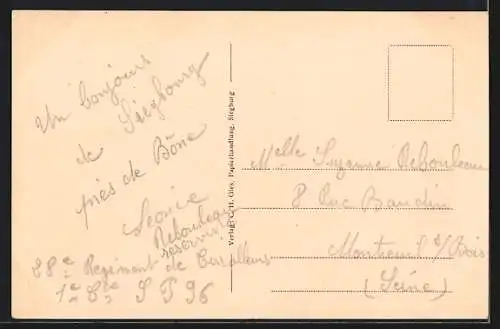 Un bonjours
de Siegbourg
près de Bône
Leonie
Rebouleau
reserviste
28e Regiment de Tirailleurs
1e Cie S P 96
Verlag: C. H. Gies, Papierhandlung, Siegburg
Melle Suzanne Rebouleau
8 Rue Baudin
Montreuil s/Bois
(Seine)